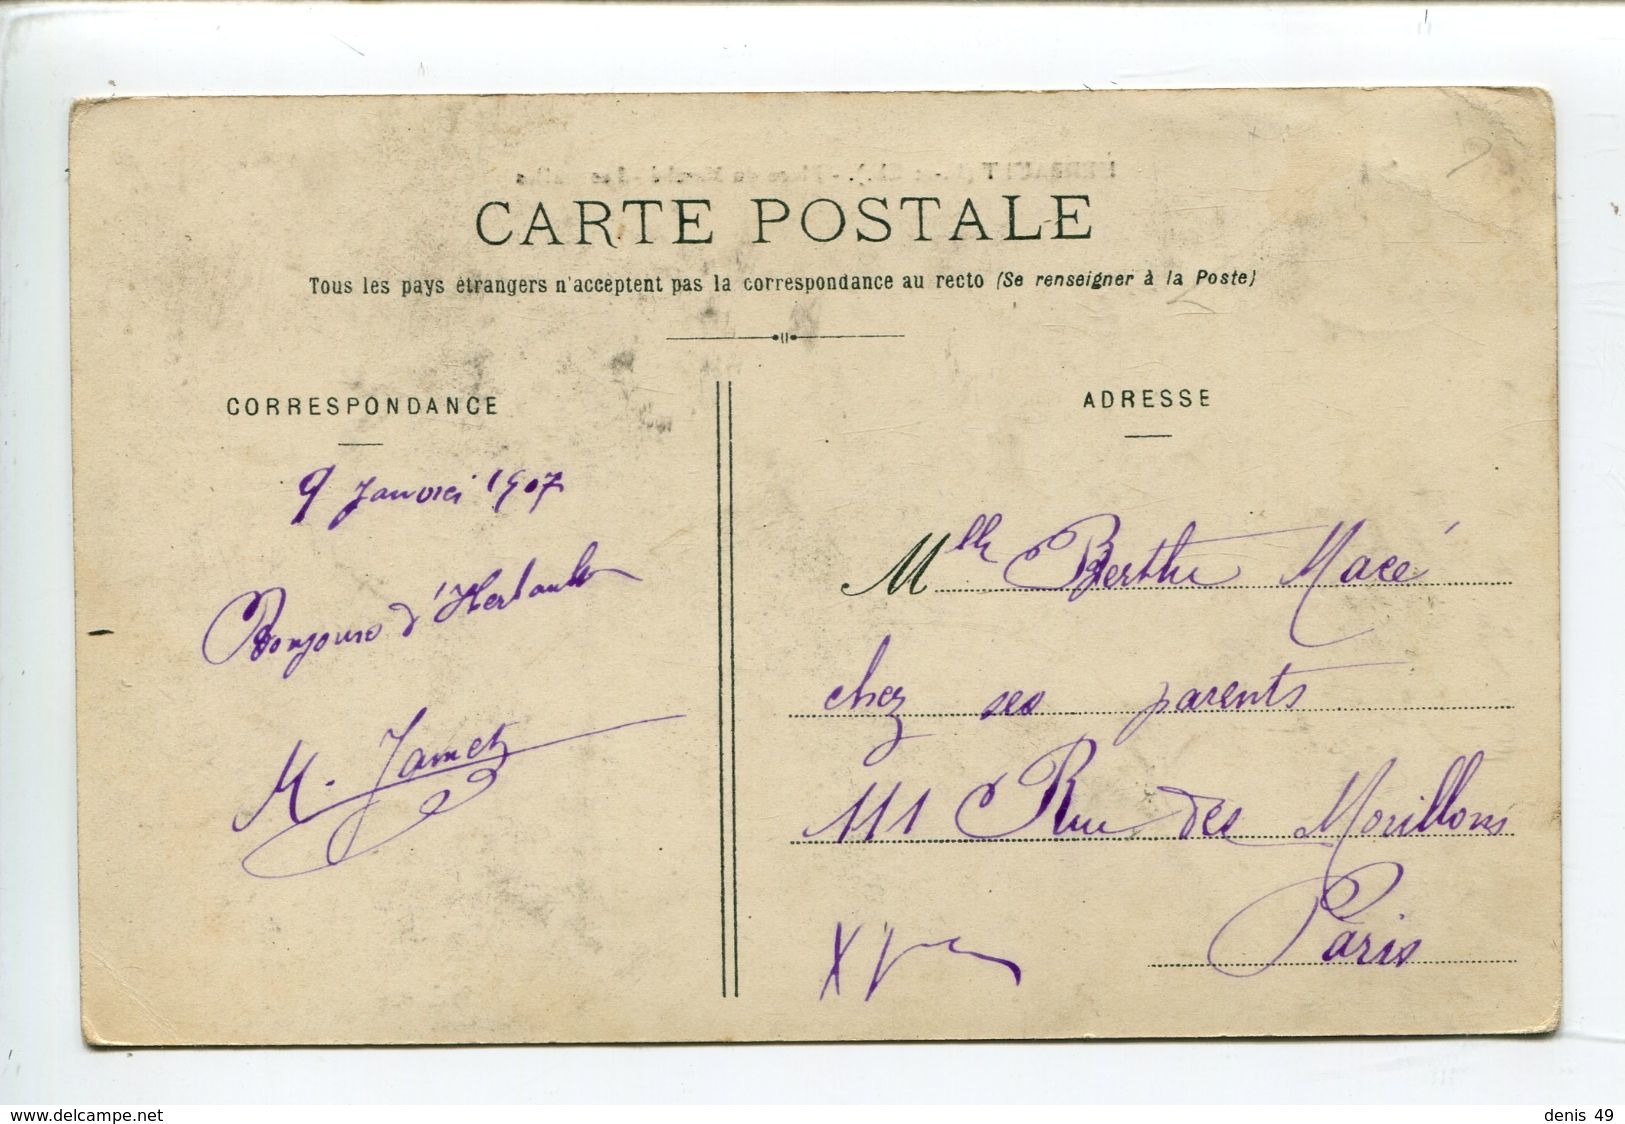 CARTE POSTALE
Tous les pays étrangers n'acceptent pas la correspondance au recto (Se renseigner à la Poste)
CORRESPONDANCE
9 Janvier 1907
Bonjours d'Herbault
M. Jamet
ADRESSE
Mlle Berthe Macé
chez ses parents
111 Rue des Morillons
Paris
www.delcampe.net
denis 49